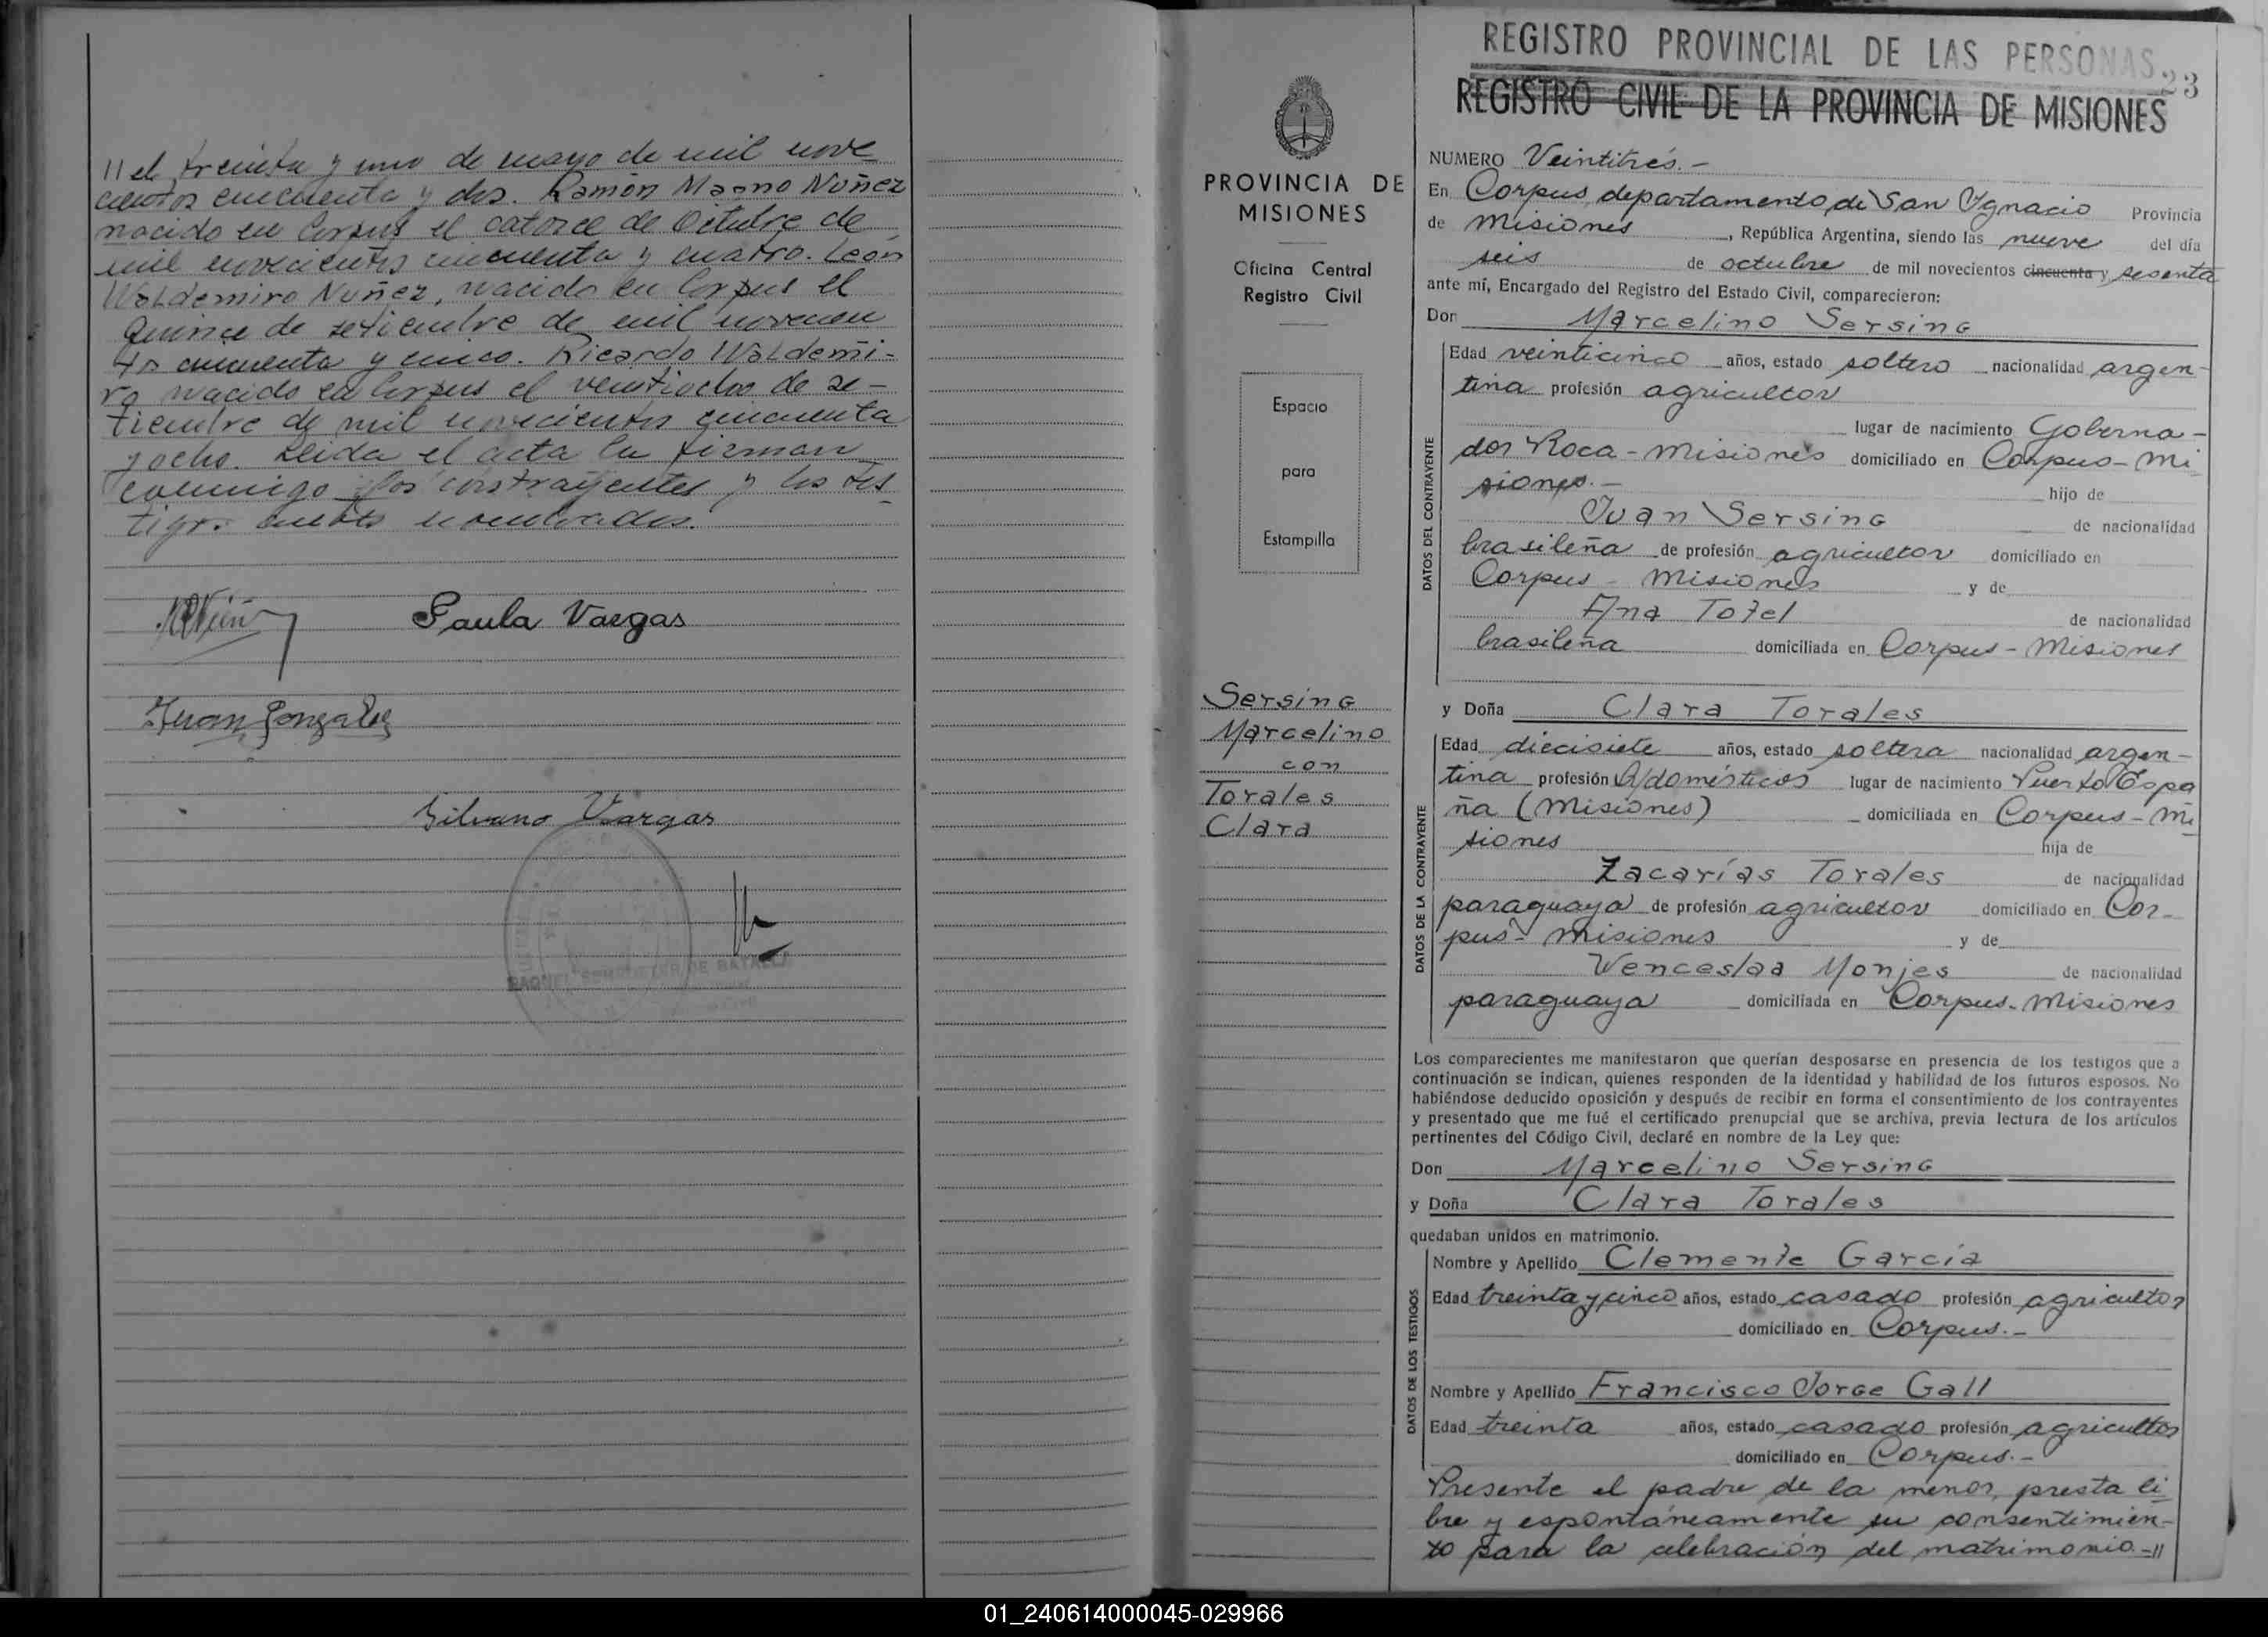 // el treinta y uno de mayo de mil nove
cientos cincuenta y dos. Ramón Magno Nuñez
nacido en Corpus el catorce de Octubre de
mil novecientos cincuenta y cuatro. León
Waldemiro Nuñez, nacido en Corpus el
quince de setiembre de mil novecien
tos cincuenta y cinco. Ricardo Waldemi-
ro nacido en Corpus el veintiocho de se-
tiembre de mil novecientos cincuenta
y ocho. Leida el acta la firman
conmigo los contrayentes y los tes
tigos nombrados.
Paula Vargas
Juan Gonzalez
Silvano Vargas
PROVINCIA DE
MISIONES
Oficina Central
Registro Civil
Espacio
para
Estampilla
Sersing
Marcelino
con
Torales
Clara
REGISTRO PROVINCIAL DE LAS PERSONAS
23
REGISTRO CIVIL DE LA PROVINCIA DE MISIONES
NUMERO Veintitrés.-
En Corpus, departamento de San Ygnacio Provincia
de Misiones, República Argentina, siendo las nueve del día
seis de octubre de mil novecientos cincuenta y sesenta
ante mí, Encargado del Registro del Estado Civil, comparecieron:
Don Marcelino Sersing
Edad veinticinco años, estado soltero nacionalidad argen-
tina profesión agricultor
lugar de nacimiento Goberna-
dor Roca - Misiones domiciliado en Corpus - Mi
siones.- hijo de
Juan Sersing de nacionalidad
brasileña de profesión agricultor domiciliado en
Corpus - Misiones y de
Ana Tofel de nacionalidad
brasileña domiciliada en Corpus - Misiones
y Doña Clara Torales
Edad diecisiete años, estado soltera nacionalidad argen-
tina profesión Q/domésticos lugar de nacimiento Puerto Espa
ña (Misiones) domiciliada en Corpus - Mi
siones hija de
Zacarías Torales de nacionalidad
paraguaya de profesión agricultor domiciliado en Cor-
pus - Misiones y de
Wenceslaa Monjes de nacionalidad
paraguaya domiciliada en Corpus - Misiones
DATOS DEL CONTRAYENTE
DATOS DE LA CONTRAYENTE
Los comparecientes me manifestaron que querían desposarse en presencia de los testigos que a
continuación se indican, quienes responden de la identidad y habilidad de los futuros esposos. No
habiéndose deducido oposición y después de recibir en forma el consentimiento de los contrayentes
y presentado que me fué el certificado prenupcial que se archiva, previa lectura de los artículos
pertinentes del Código Civil, declaré en nombre de la Ley que:
Don Marcelino Sersing
y Doña Clara Torales
quedaban unidos en matrimonio.
DATOS DE LOS TESTIGOS
Nombre y Apellido Clemente García
Edad treinta y cinco años, estado casado profesión agricultor
domiciliado en Corpus.-
Nombre y Apellido Francisco Jorge Gall
Edad treinta años, estado casado profesión agricultor
domiciliado en Corpus.-
Presente el padre de la menor, presta li
bre y espontáneamente su consentimien-
to para la celebración del matrimonio.-//
01_240614000045-029966